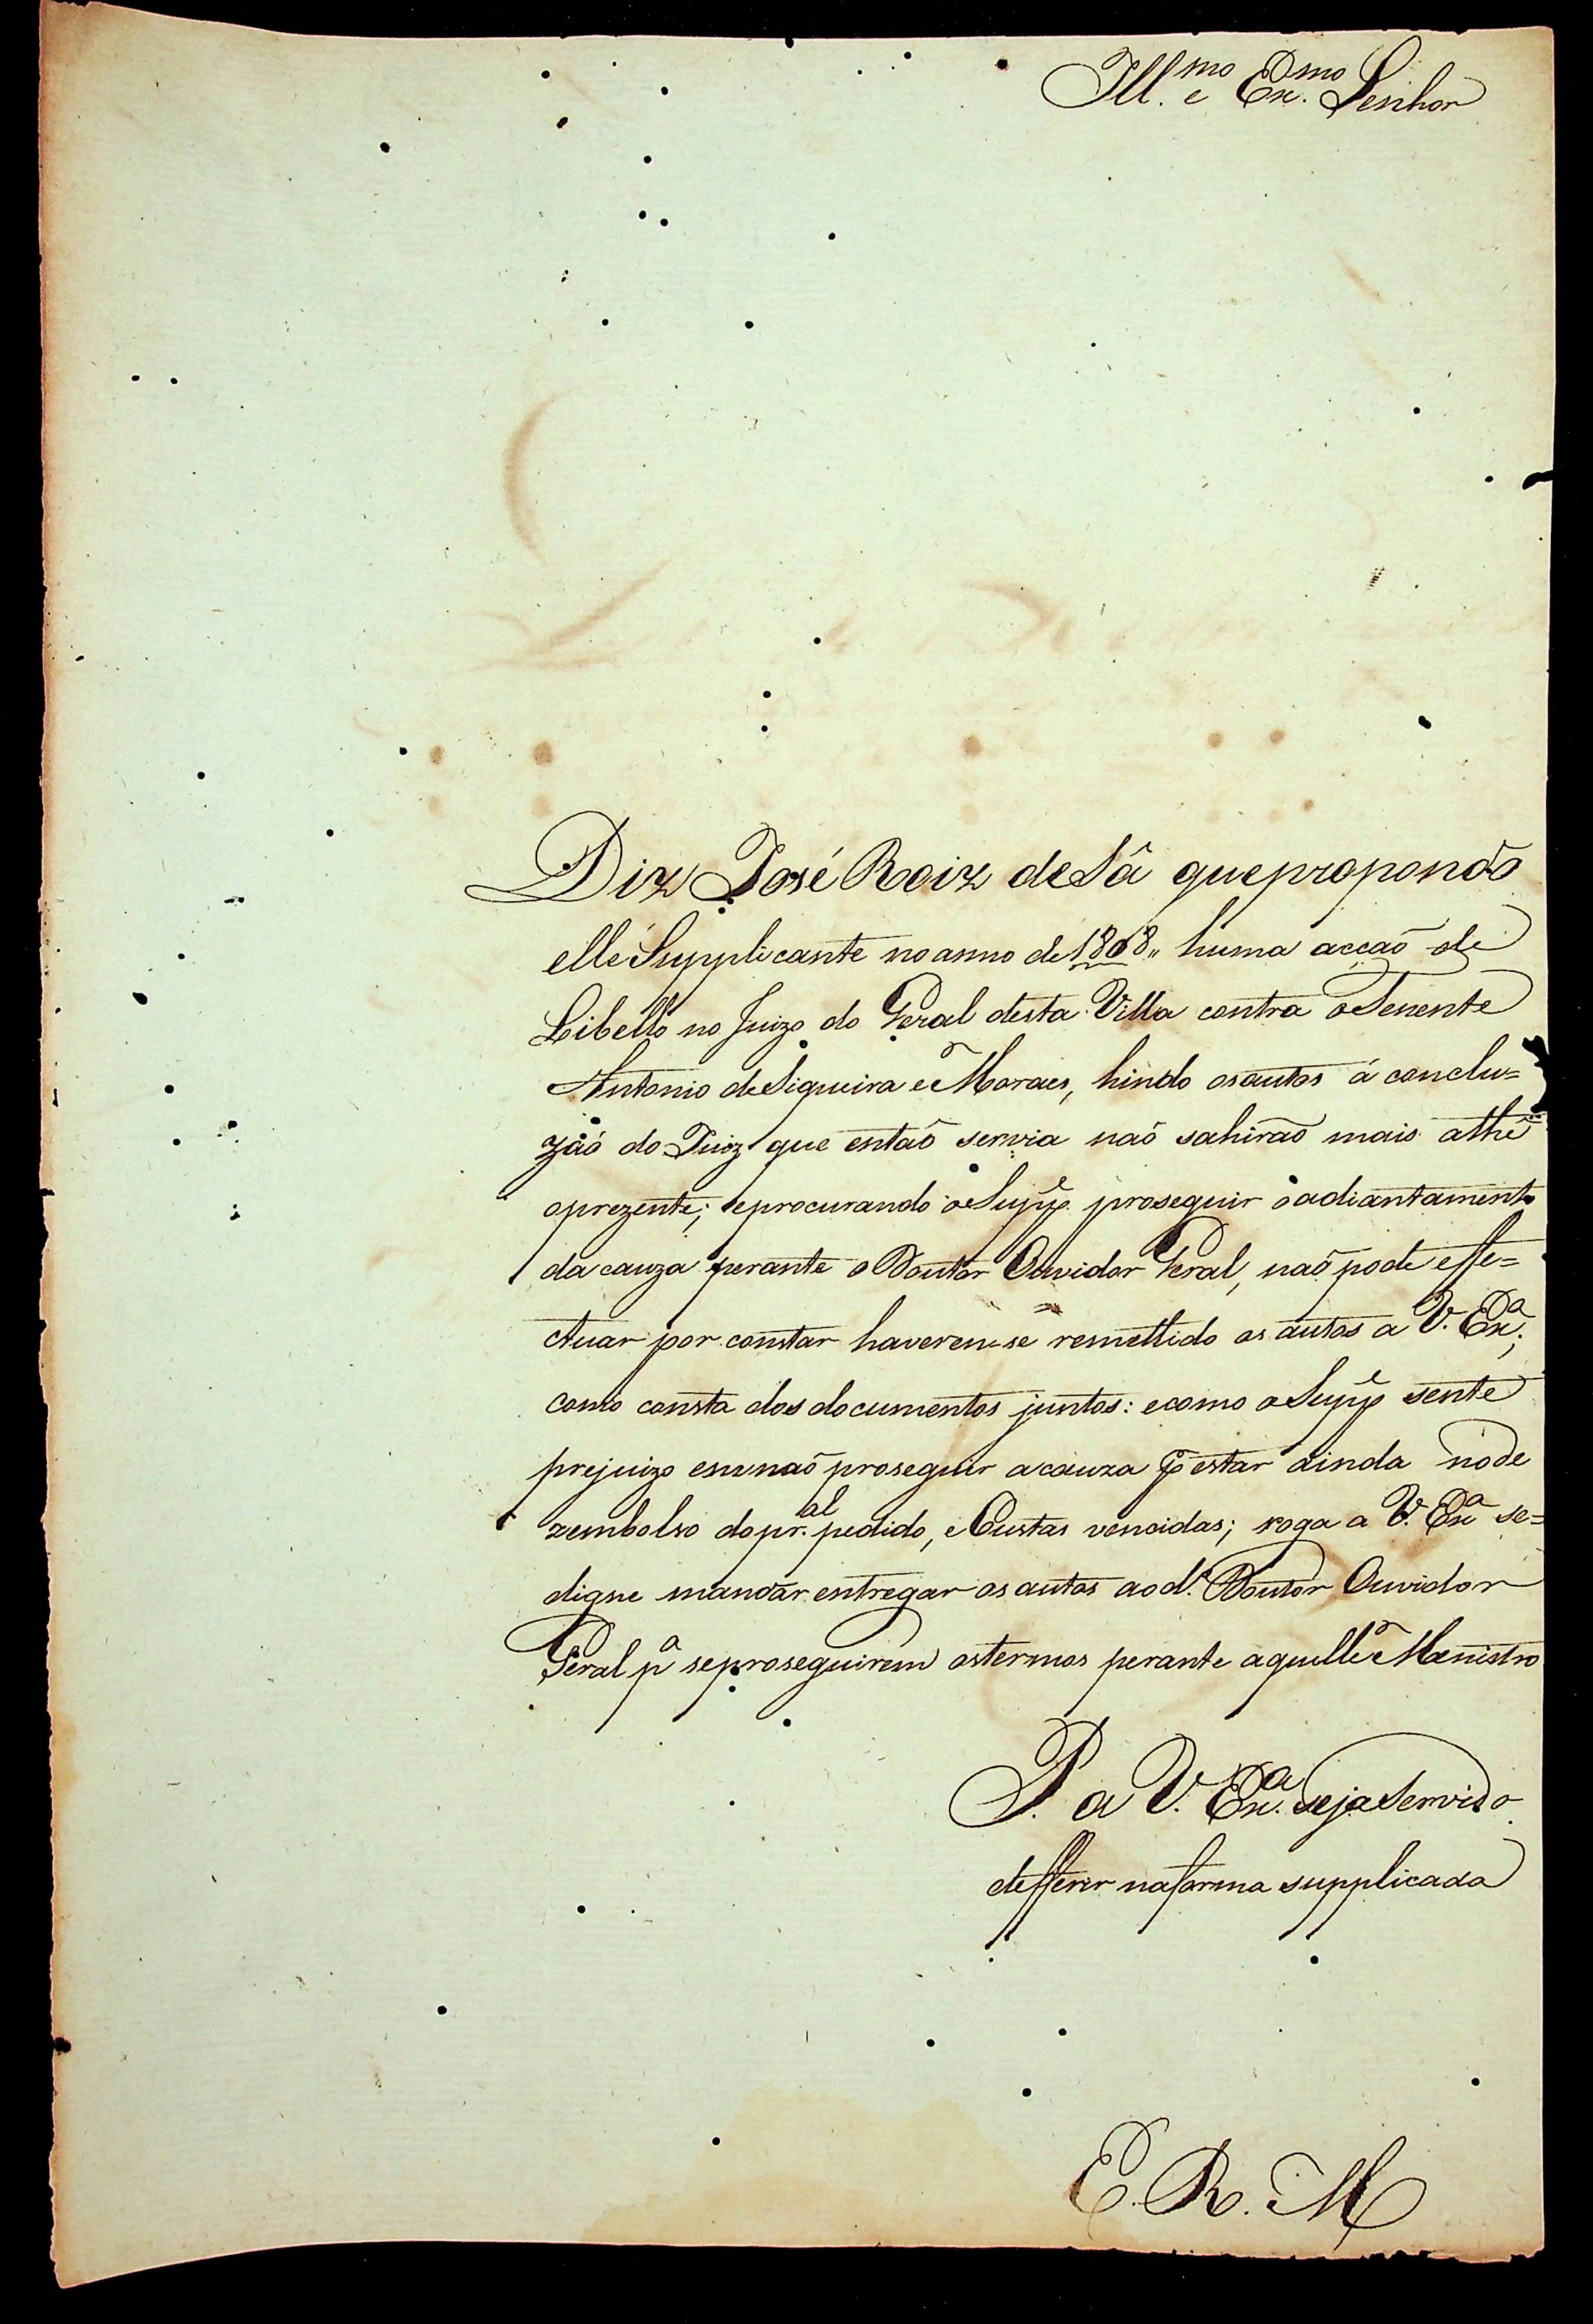 Ill.mo e Ex.mo Senhor
Diz José Roiz de Sâ que propondo
elle Supplicante no anno de 1808,, huma acçaõ de
Libello no Juizo do Geral desta Villa contra o Tenente
Antonio de Siqueira e Moraes, hindo os autos á conclu=
zaõ do Juiz que entaõ servia naõ sahiraõ mais athe
o prezente; e procurando o Supp.e proseguir o adiantamento
da cauza perante o Doutor Ouvidor Geral, naõ pode effe=
ctuar por constar haverem-se remettido os autos a V. Ex.a;
como consta dos documentos juntos: e como o Supp.e sente
prejuizo em naõ proseguir a cauza p.r estar ainda no de
zembolso do pr.al pedido, e Custas vencidas; roga a V. Ex.a se=
digne mandar entregar os autos ao d.o Doutor Ouvidor
Geral p.a se proseguirem os termos perante aquelle Menistro
P. a V. Ex.a seja Servido
defferir na forma supplicada
E. R. M